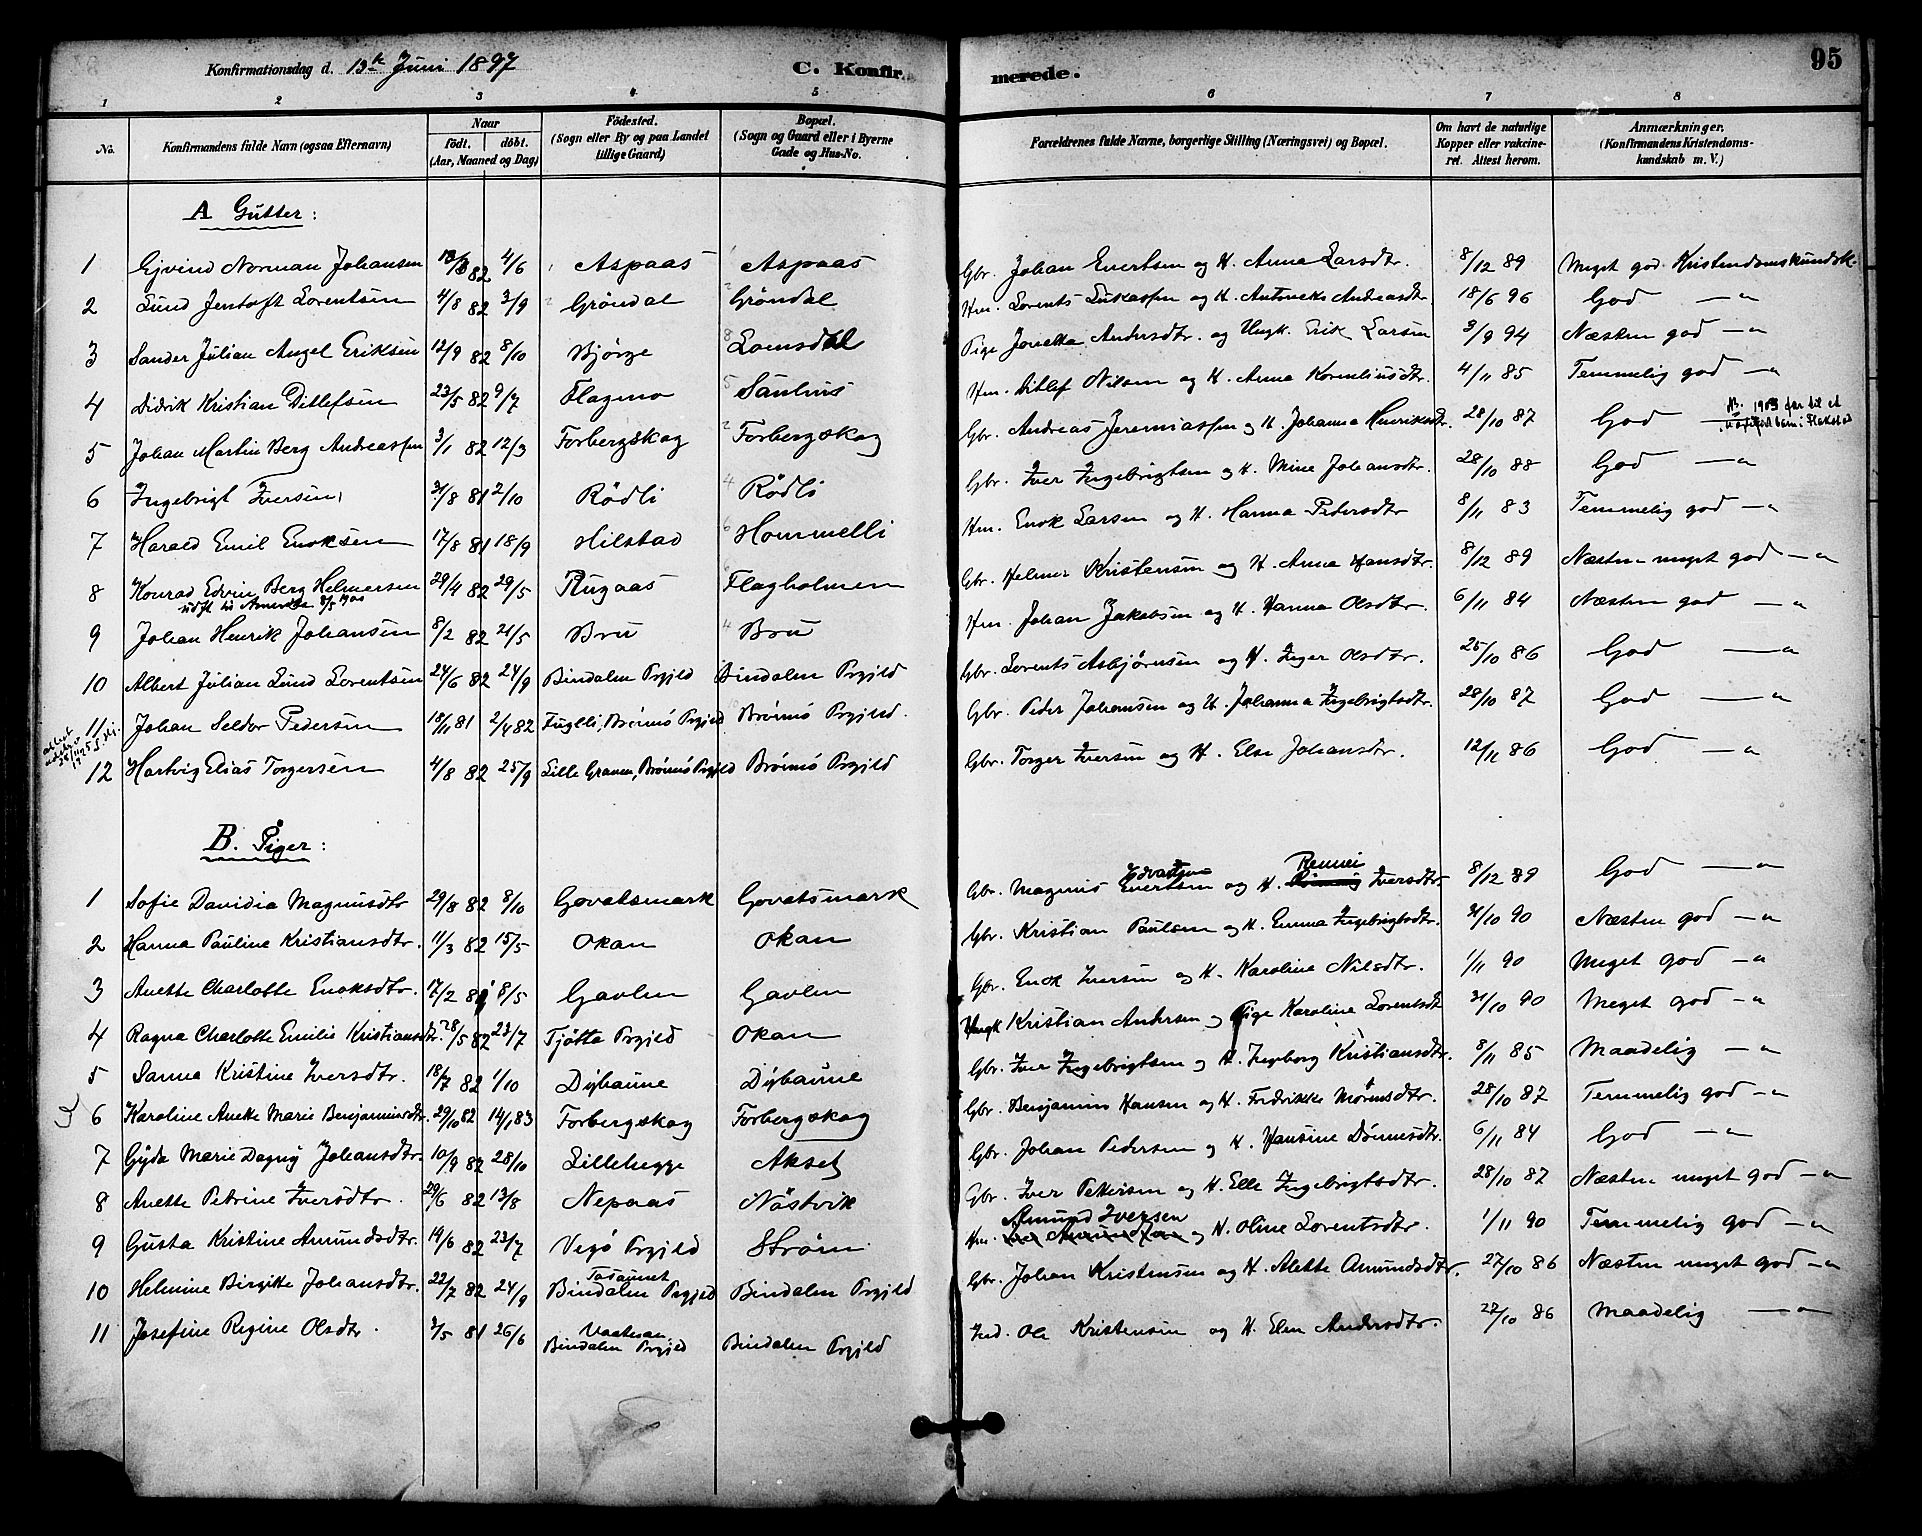 Konfirmationsdag d. 13de Juni 1897 C. Konfirmerede. 95
1 2 3 4 5 6 7 8
No. Konfirmandens fulde Navn (ogsaa Efternavn) Naar födt. døbt. (Aar, Maaned og Dag) Födested. (Sogn eller By og paa Landet tillige Gaard) Bopæl. (Sogn og Gaard eller i Byerne Gade og Hus-No. Forældrenes fulde Navne, borgerlige Stilling (Næringsvei) og Bopæl. Om havt de naturlige Kopper eller vakcineret. Attest herom. Anmærkninger. (Konfirmandens Kristendomskundskab m. V.)
A Gutter:
1 Ejvind Norman Johansen 82 4/6 Aspaas Aspaas Gbr. Johan Evertsen og H. Anna Larsdtr. 8/12 89 Meget god Kristendomskundsk.
2 Lund Jentoft Lorentsen 4/8 82 3/9 Gröndal Gröndal Hm. Lorents Lukassen og H. Andreasdtr. 18/6 96 God —"
3 Sander Julian Angel Eriksen 12/9 82 8/10 Bjørge Lomsdal Pige Jonetta Andersdtr. og Ungk. Erik Larsen 3/9 94 Næsten god —"
4 Didrik Kristian Ditlefsen 23/5 82 9/7 Flagmo Saulius Hm. Ditlef Nilsen og H. Anna Korneliusdtr. 4/11 85 Temmelig god —"
5 Johan Martin Berg Andreassen 3/1 82 12/3 Forbergskog Forbergskog Gbr. Andreas Jeremiassen og H. Johanna Henriksdtr. 28/10 87 God —" 1903 far til et barn i Flakstad
6 Ingebrigt Iversen 31/8 81 2/10 Rödli Rödli Gbr. Iver Ingebrigtsen og H. Mine Johansdtr. 28/10 88 God —"
7 Harald Emil Enoksen 17/8 81 18/9 Hilstad Hommelli Hm. Enok Larsen og H. Hanna Pedersdtr 8/11 83 Temmelig god —"
8 Konrad Edvin Berg Helmersen 29/4 82 29/5 Rugaas Flagholmen Gbr. Helmer Kristensen og H. Anna Hansdtr. 8/12 89 Næsten meget god —"
udft til Amerika 8/5 1900
9 Johan Henrik Johansen 8/2 82 21/5 Bru Bru Hm. Johan Jakobsen og H. Hanna Olsdtr. 6/11 84 Næsten god —"
10 Albert Julian Lund Lorentsen 24/6 82 24/9 Bindalen Prgjld Bindalen Prgjld Gbr. Lorents Asbjørnsen og H. Inger Olsdtr. 25/10 86 God —"
11 Johan Seldor Pedersen 18/11 81 2/4 82 Fuglli, Brönnö Prgjeld Brönnö Prgjeld. Gbr. Peder Johansen og H. Johanna Ingebrigtsdtr. 28/10 87 God —"
12 Hartvig Elias Torgersen 4/8 82 25/9 Lille Granen, Brönnö Prgjeld Brönnö Prgjld Gbr. Torger Iversen og H. Else Johansdtr. 12/11 86 God —"
B. Piger:
1 Sofie Davidia Magnusdtr 29/8 82 8/10 Govatsmark Govatsmark Gbr. Magnus Evertsen og H. Rennei Iversdtr. 8/12 89 God —"
2 Hanna Pauline Kristiansdtr. 11/3 82 15/5 Okan Okan Gbr. Kristian Paulsen og H. Emma Ingebrigtsdtr. 31/10 90 Næsten god —"
3 Anette Charlotte Enoksdtr. 17/2 81 8/5 Gavlen Gavlen Gbr. Enok Iversen og H. Karoline Nilsdtr. 1/11 90 Meget god —"
4 Ragna Charlotte Emilie Kristiansdtr. 28/5 82 23/7 Tjøtta Prgjeld Okan Ungk Kristian Andersen og Pige Karoline Lorentsdtr 31/10 90 Meget god —"
5 Sanna Kristine Iversdtr. 18/7 82 1/10 Dybaune Dybaune Gbr. Iver Ingebrigtsen og H. Ingeborg Kristiansdtr. 8/11 85 Maadelig —"
6 Karoline Anette Marie Benjaminsdtr. 29/10 82 14/1 83 Forbergskog Forbergskog Gbr. Benjamin Hansen og H. Fredrikke Mørensdtr. 28/10 87 Temmelig god —"
7 Gyda Marie Dagny Johansdtr. 10/9 82 28/10 Lillehegge Aksel Gbr. Johan Pedersen og H. Hansine Dønnesdtr. 6/11 84 God —"
8 Anette Petrine Iversdtr. 29/6 82 13/8 Nepaas Nästvik Gbr. Iver Pettersen og H. Elle Ingebrigtsdtr. 28/10 87 Næsten meget god —"
9 Gusta Kristine Amundsdtr. 14/6 82 23/7 Vegö Prgjeld Ström Hm. Amund Iversen og H. Oline Lorentsdtr. 1/11 90 Temmelig god —"
10 Helmine Birgitte Johansdtr. 22/7 82 24/9 Bindalen Prgjeld Bindalen Prgjeld Gbr. Johan Kristensen og H. Alette Amundsdtr. 27/10 86 Næsten meget god —"
11 Josefine Regine Olsdtr. 81 26/6 Bindalen Prgjeld Bindalen Prgjeld Ind. Ole Kristensen og H. Elen Andersdtr. 27/10 86 Maadelig —"